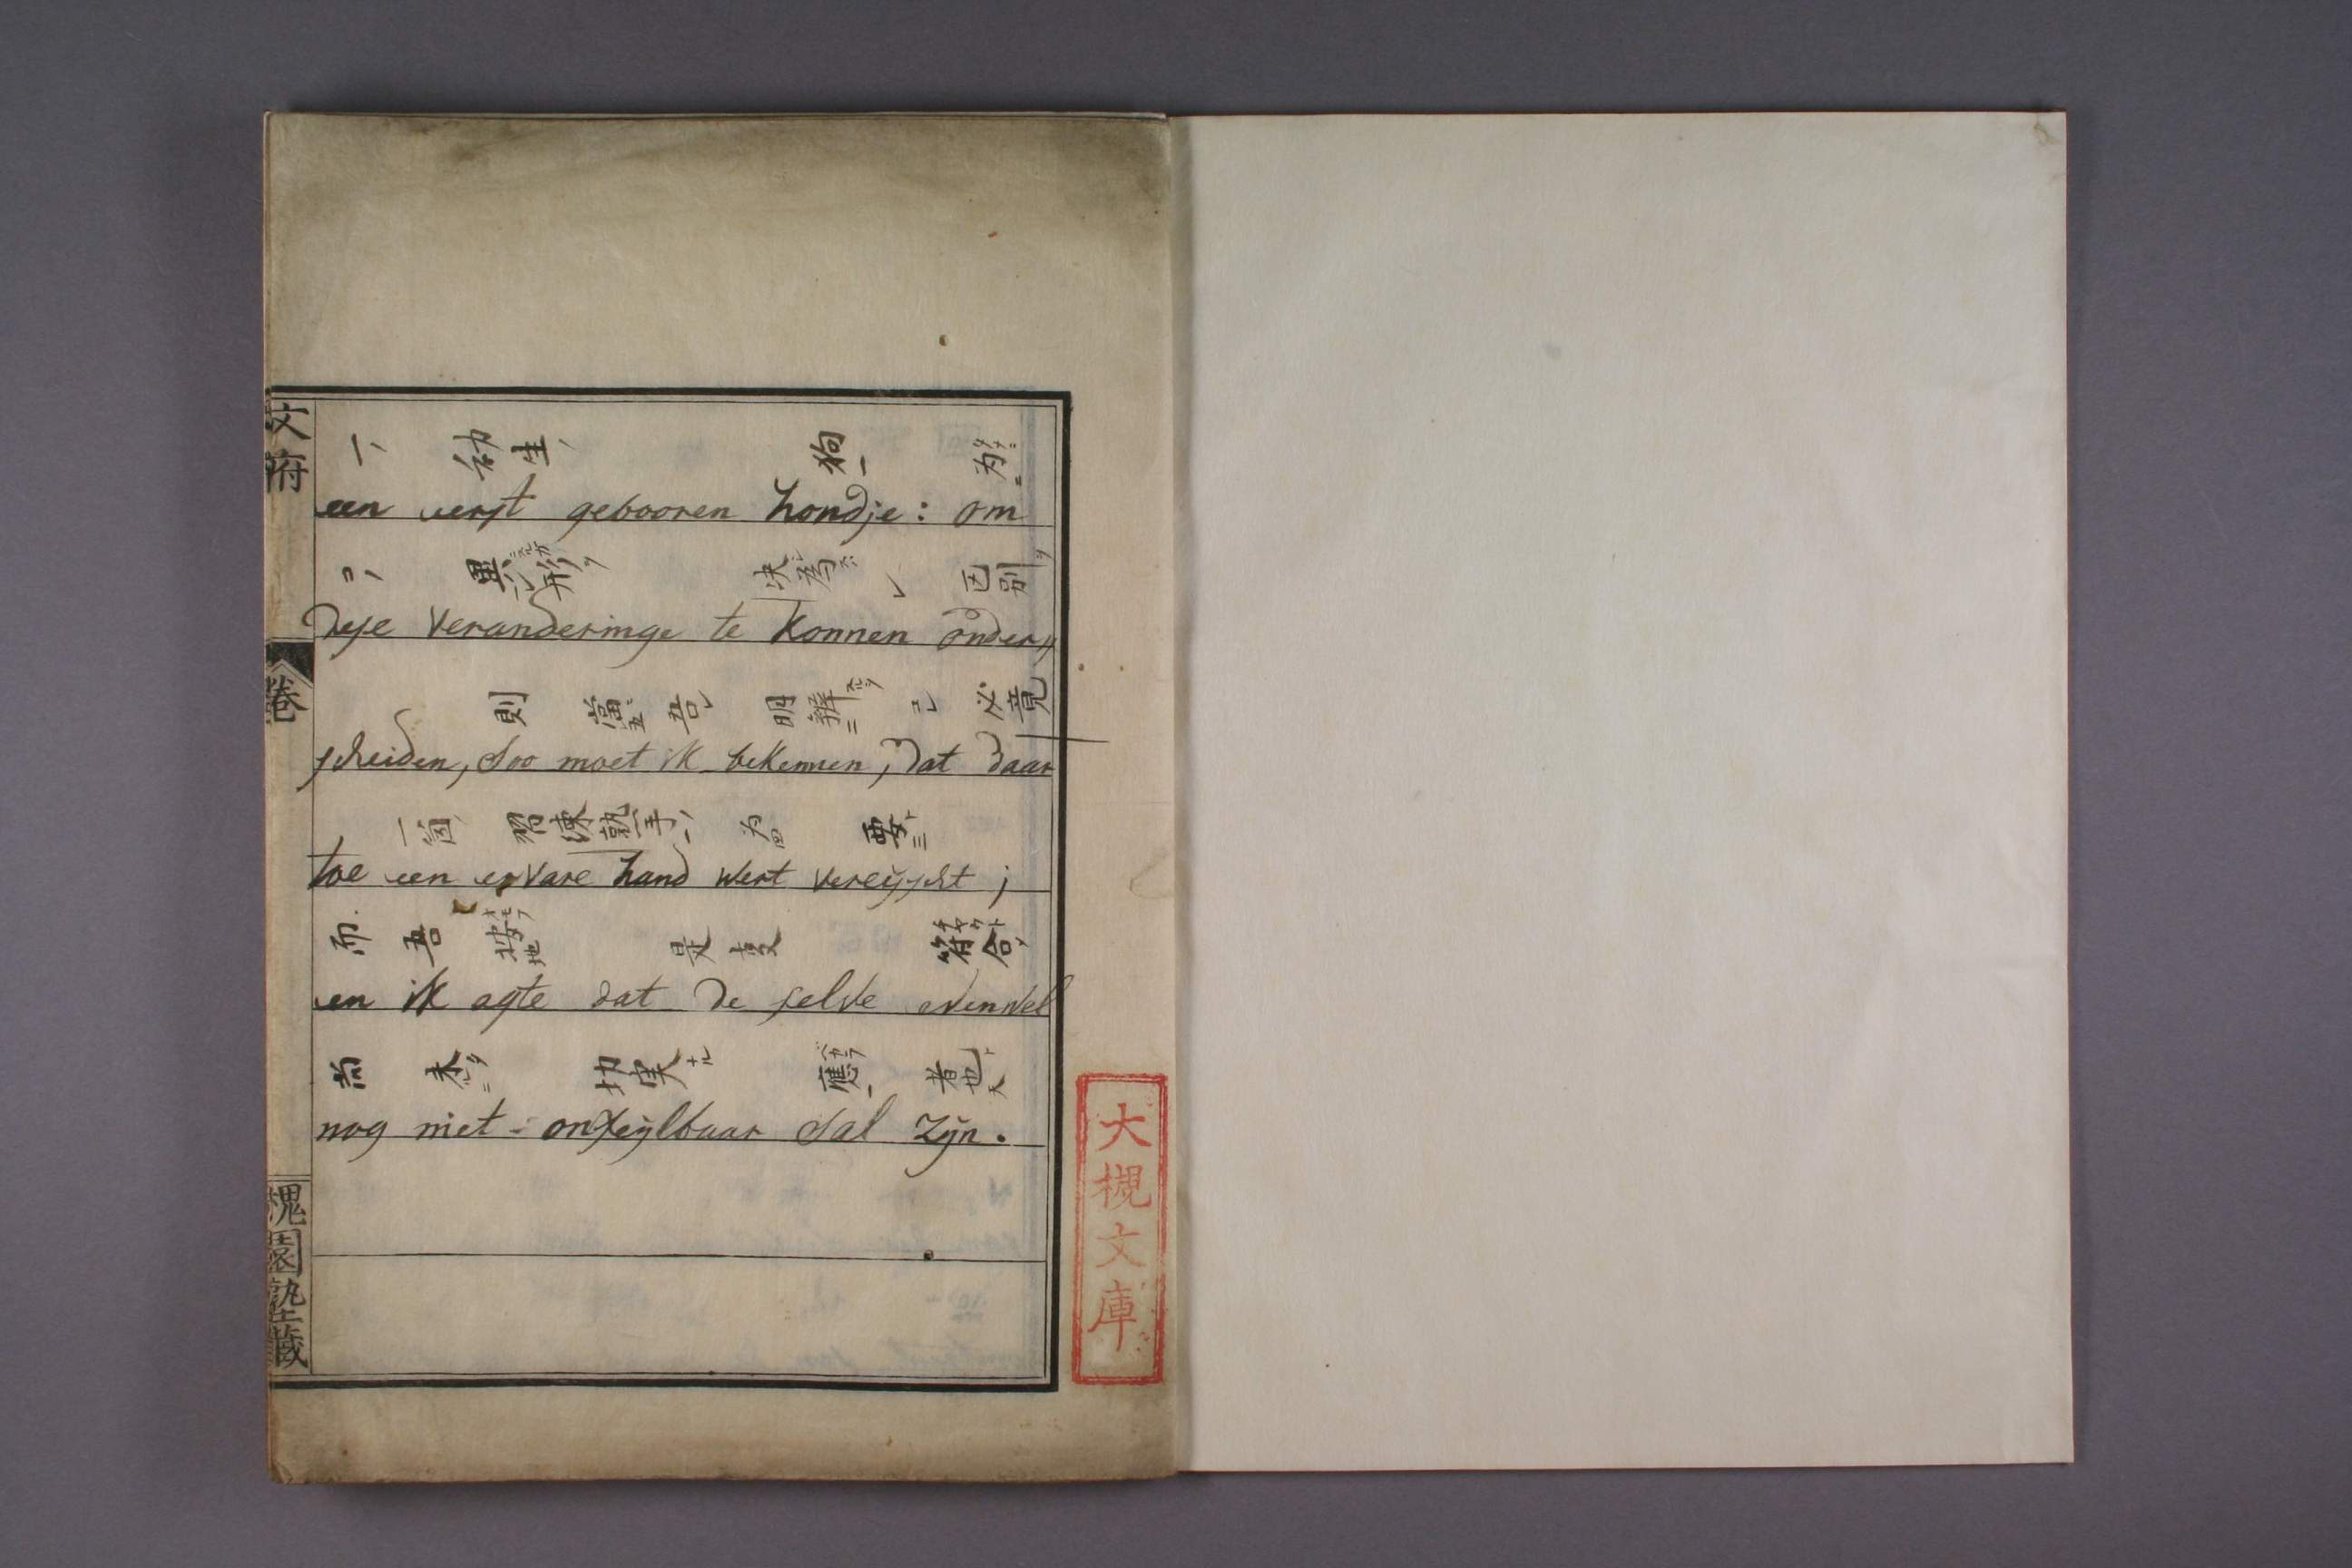 文府
卷
槐園塾蔵
一 幼生 狗 为
een eerst gebooren hondje: om
コノ 異形 決為 区別
dese veranderinge te konnen onder〃
則 當 吾 明辨 已 必竟
scheiden, soo moet ik bekennen, dat daar
一箇 習練熟手 为 要
toe een ervare hand wert vereijscht;
而 吾 按 是支 符合
en ik agte dat de selve evenwel
尚 未 切実 應 者也
nog niet onfeijlbaar sal zijn.
大槻文庫